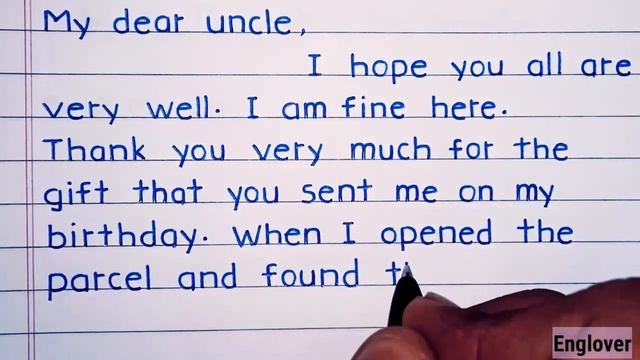 My dear uncle,
I hope you all are
very well. I am fine here.
Thank you very much for the
gift that you sent me on my
birthday. When I opened the
parcel and found t
Englover